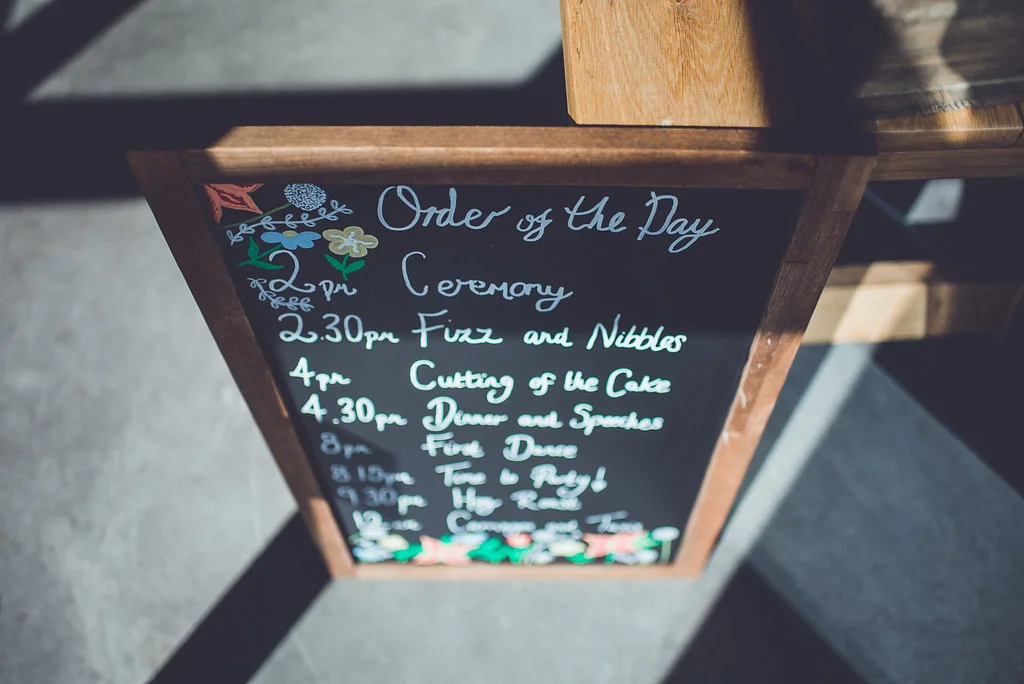 Order of the Day
2pm Ceremony
2.30pm Fizz and Nibbles
4pm Cutting of the Cake
4.30pm Dinner and Speeches
8pm First Dance
8.15pm Time to Party!
9.30pm Hog Roast
12am Carriages and